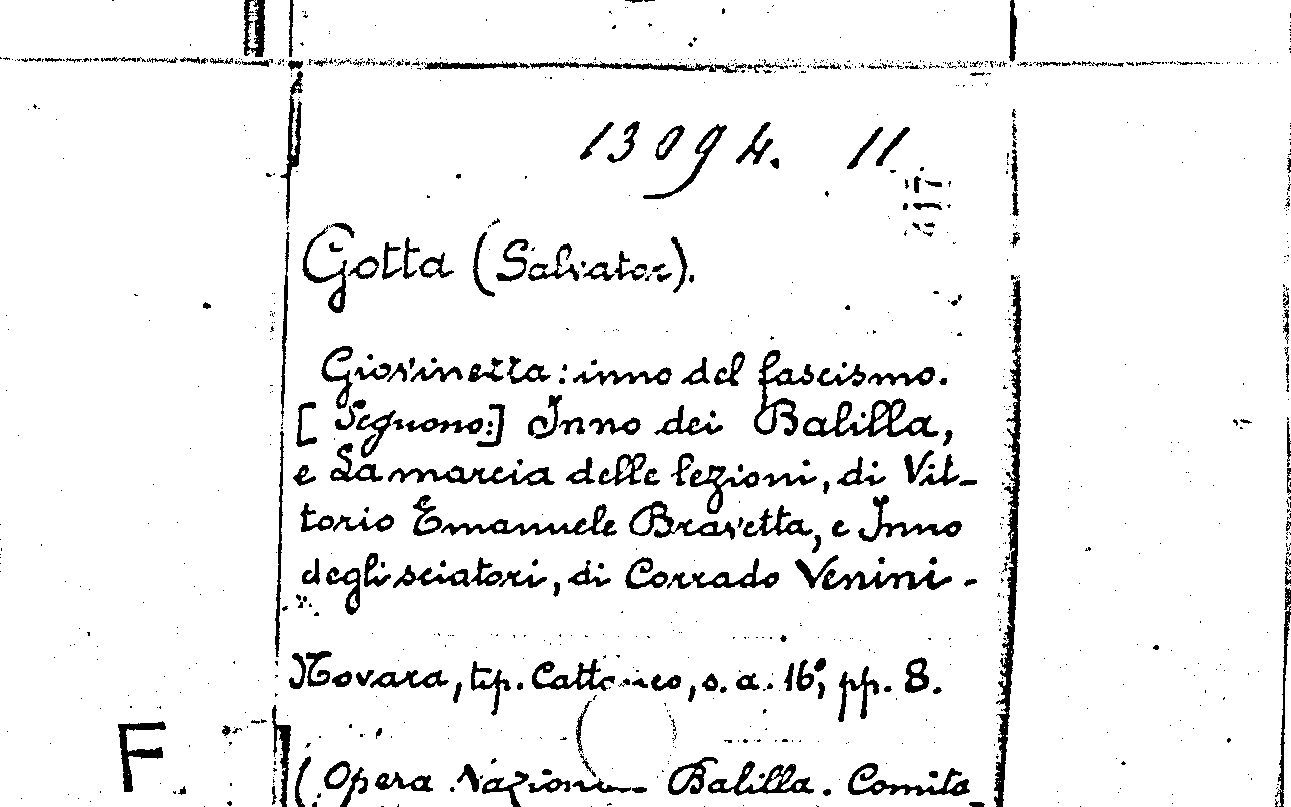 13094. 11
417
Gotta (Salvator).
Giovinezza: inno del fascismo.
[Seguono:] Inno dei Balilla,
e La marcia delle lezioni, di Vit-
torio Emanuele Bravetta, e Inno
degli sciatori, di Corrado Venini -
Novara, tip. Cattaneo, s. a. 16°, pp. 8.
F
(Opera Nazionale Balilla. Comita